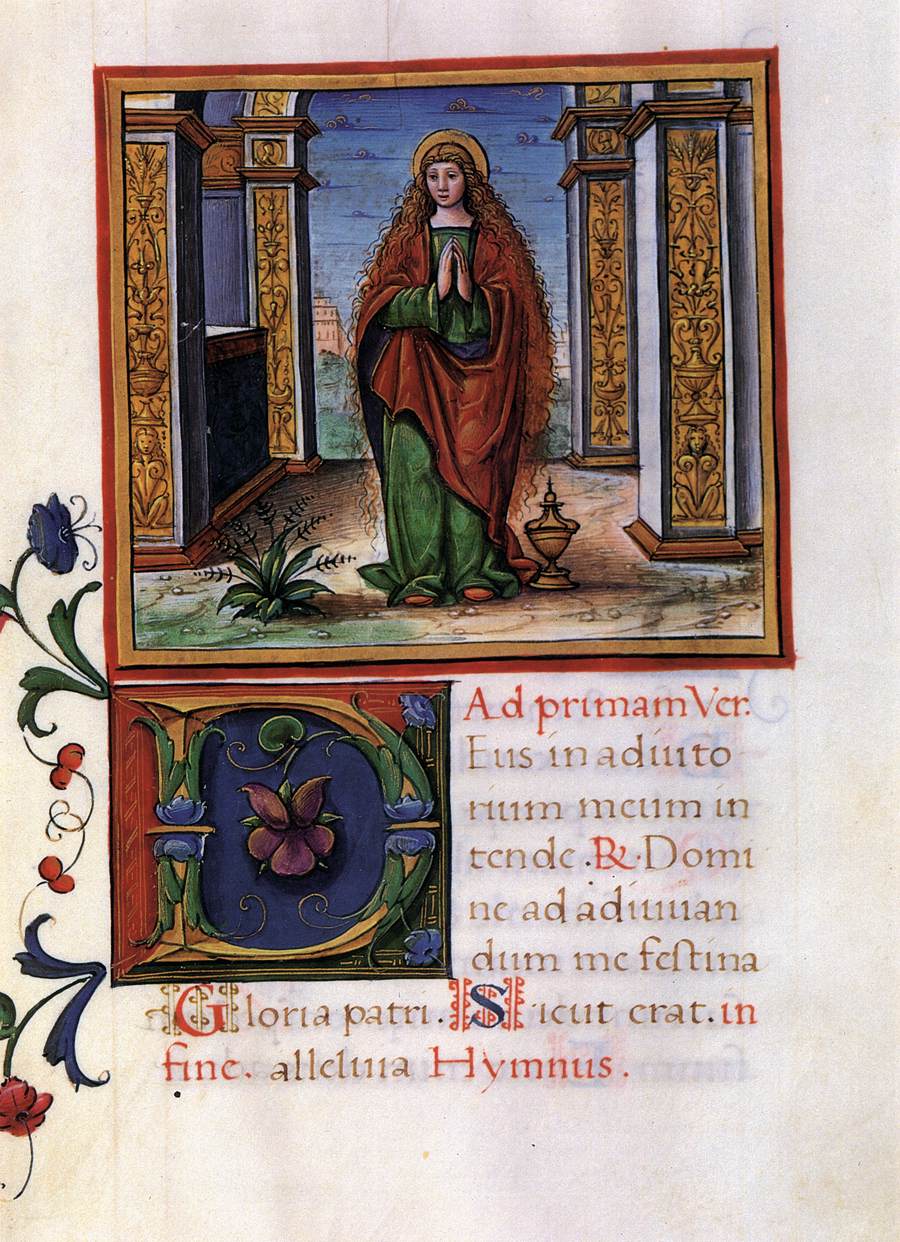 Ad primam Ver.
DEus in adiuto
rium meum in
tende. R. Domi
ne ad adiuuan
dum me festina
Gloria patri. Sicut erat. in
fine. alleluia Hymnus.